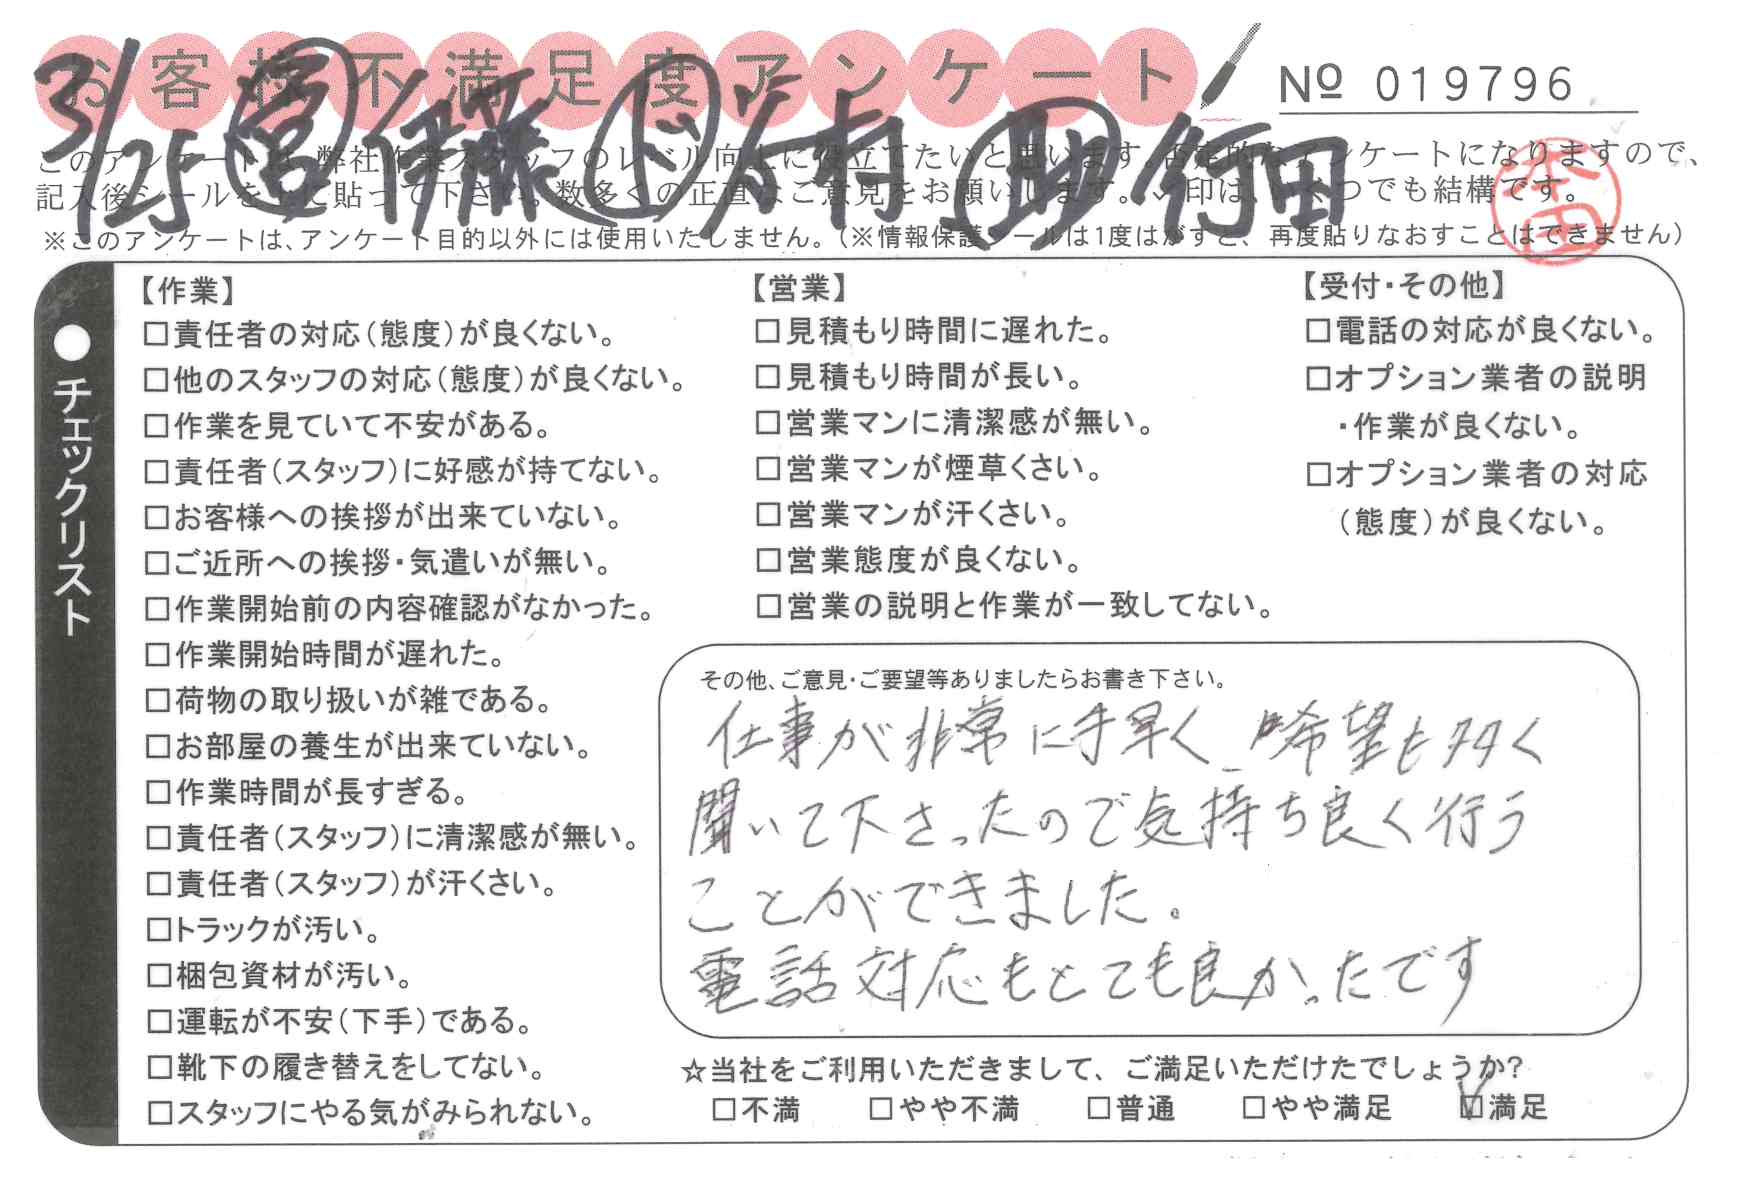 お客様不満足度アンケート
№ 019796
3/25 ㊂営 伊藤 ト 今村 助 行田
このアンケートは、弊社作業スタッフのレベル向上に役立てたいと思います。否定的なアンケートになりますので、
記入後シールを上に貼って下さい。数多くの正直なご意見をお願いします。✓印は、いくつでも結構です。
※このアンケートは、アンケート目的以外には使用いたしません。（※情報保護シールは1度はがすと、再度貼りなおすことはできません）
本田
●チェックリスト
【作業】
□責任者の対応（態度）が良くない。
□他のスタッフの対応（態度）が良くない。
□作業を見ていて不安がある。
□責任者（スタッフ）に好感が持てない。
□お客様への挨拶が出来ていない。
□ご近所への挨拶・気遣いが無い。
□作業開始前の内容確認がなかった。
□作業開始時間が遅れた。
□荷物の取り扱いが雑である。
□お部屋の養生が出来ていない。
□作業時間が長すぎる。
□責任者（スタッフ）に清潔感が無い。
□責任者（スタッフ）が汗くさい。
□トラックが汚い。
□梱包資材が汚い。
□運転が不安（下手）である。
□靴下の履き替えをしてない。
□スタッフにやる気がみられない。
【営業】
□見積もり時間に遅れた。
□見積もり時間が長い。
□営業マンに清潔感が無い。
□営業マンが煙草くさい。
□営業マンが汗くさい。
□営業態度が良くない。
□営業の説明と作業が一致してない。
【受付・その他】
□電話の対応が良くない。
□オプション業者の説明
・作業が良くない。
□オプション業者の対応
（態度）が良くない。
その他、ご意見・ご要望等ありましたらお書き下さい。
仕事が非常に手早く、希望も多く
聞いて下さったので気持ち良く行う
ことができました。
電話対応もとても良かったです
☆当社をご利用いただきまして、ご満足いただけたでしょうか？
□不満 □やや不満 □普通 □やや満足 ☑満足